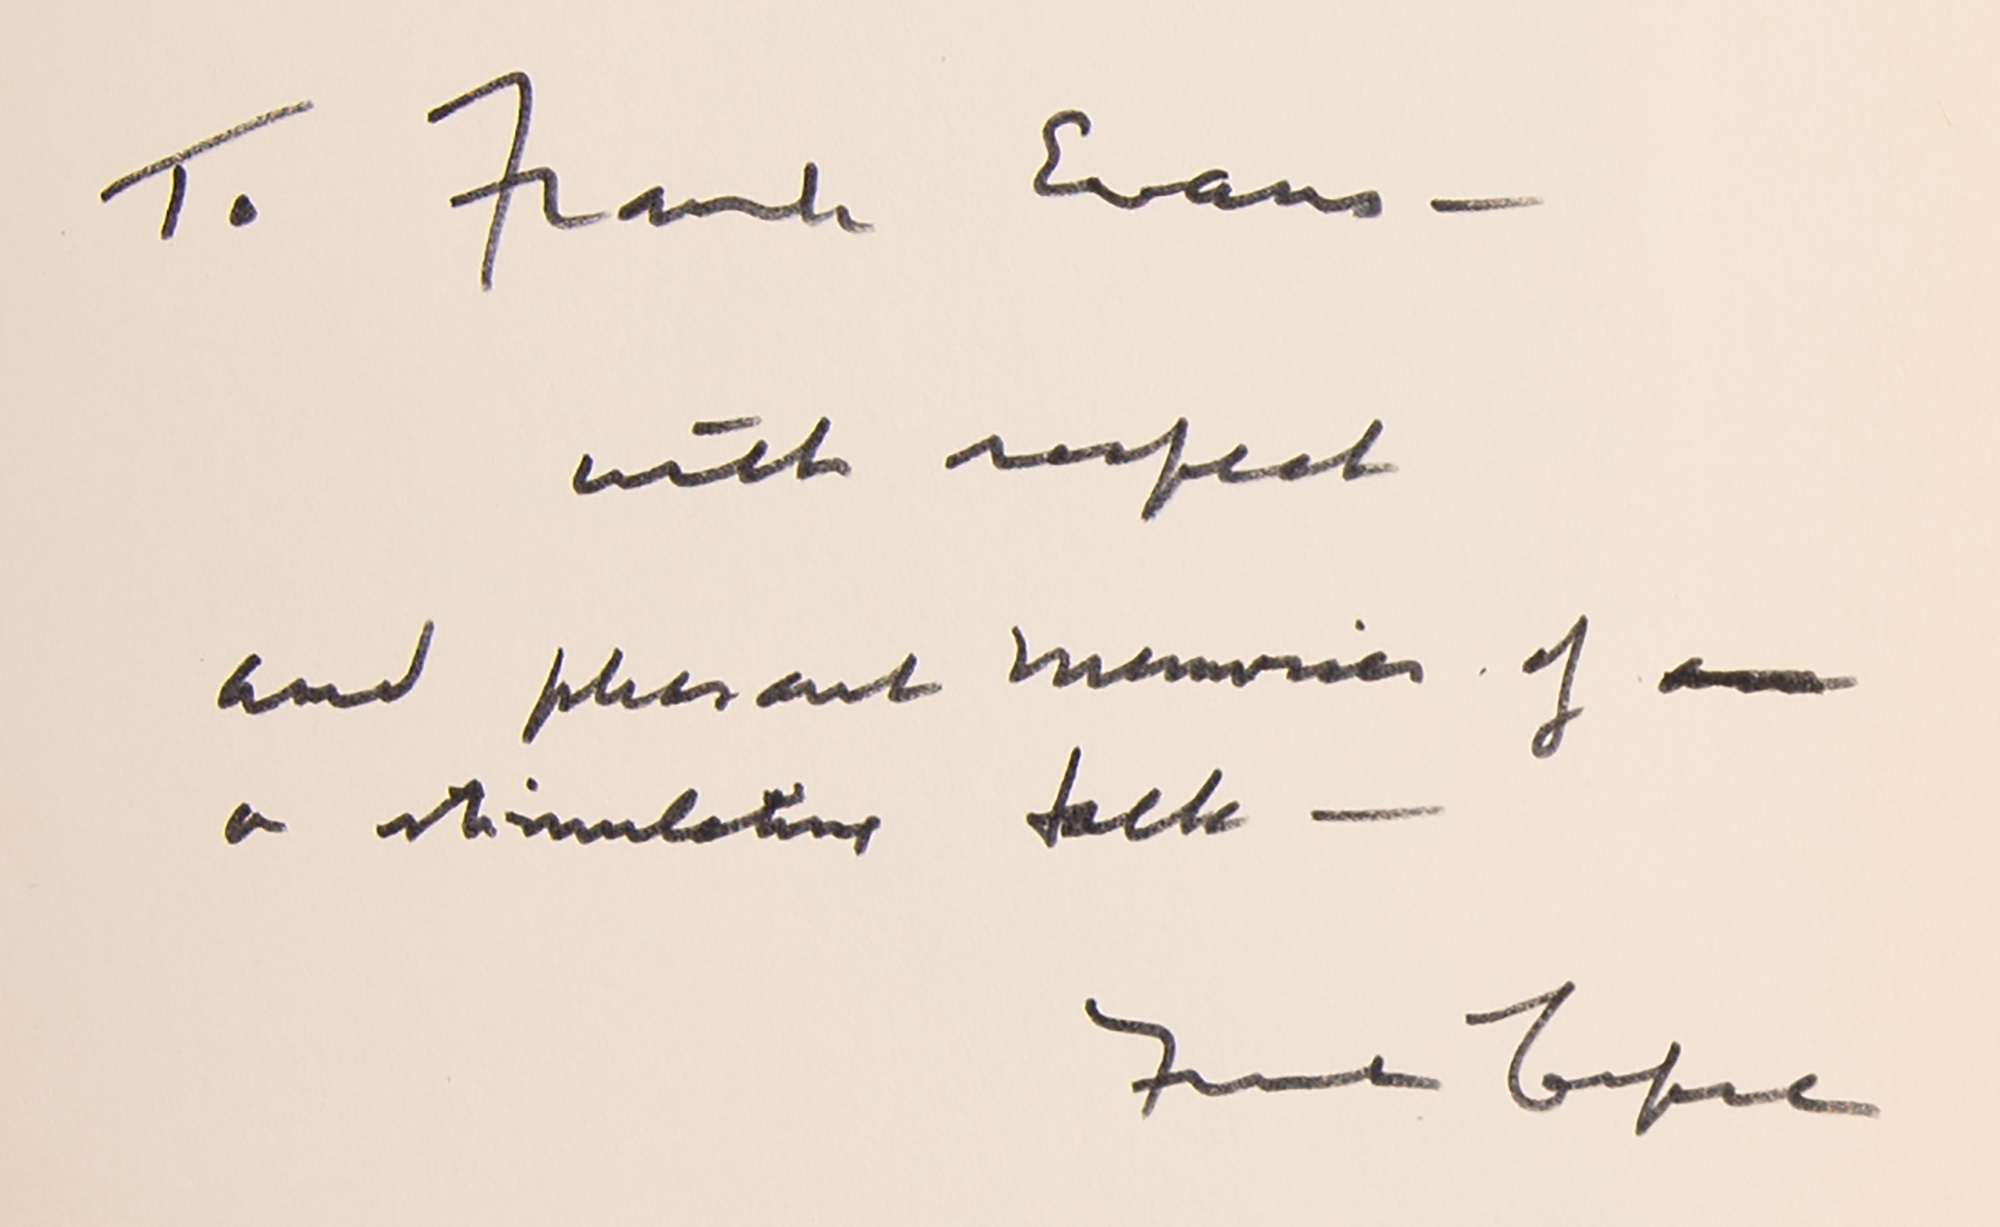 To Frank Evans —
with respect
and pleasant memories of
a stimulating talk —
Frank Capra